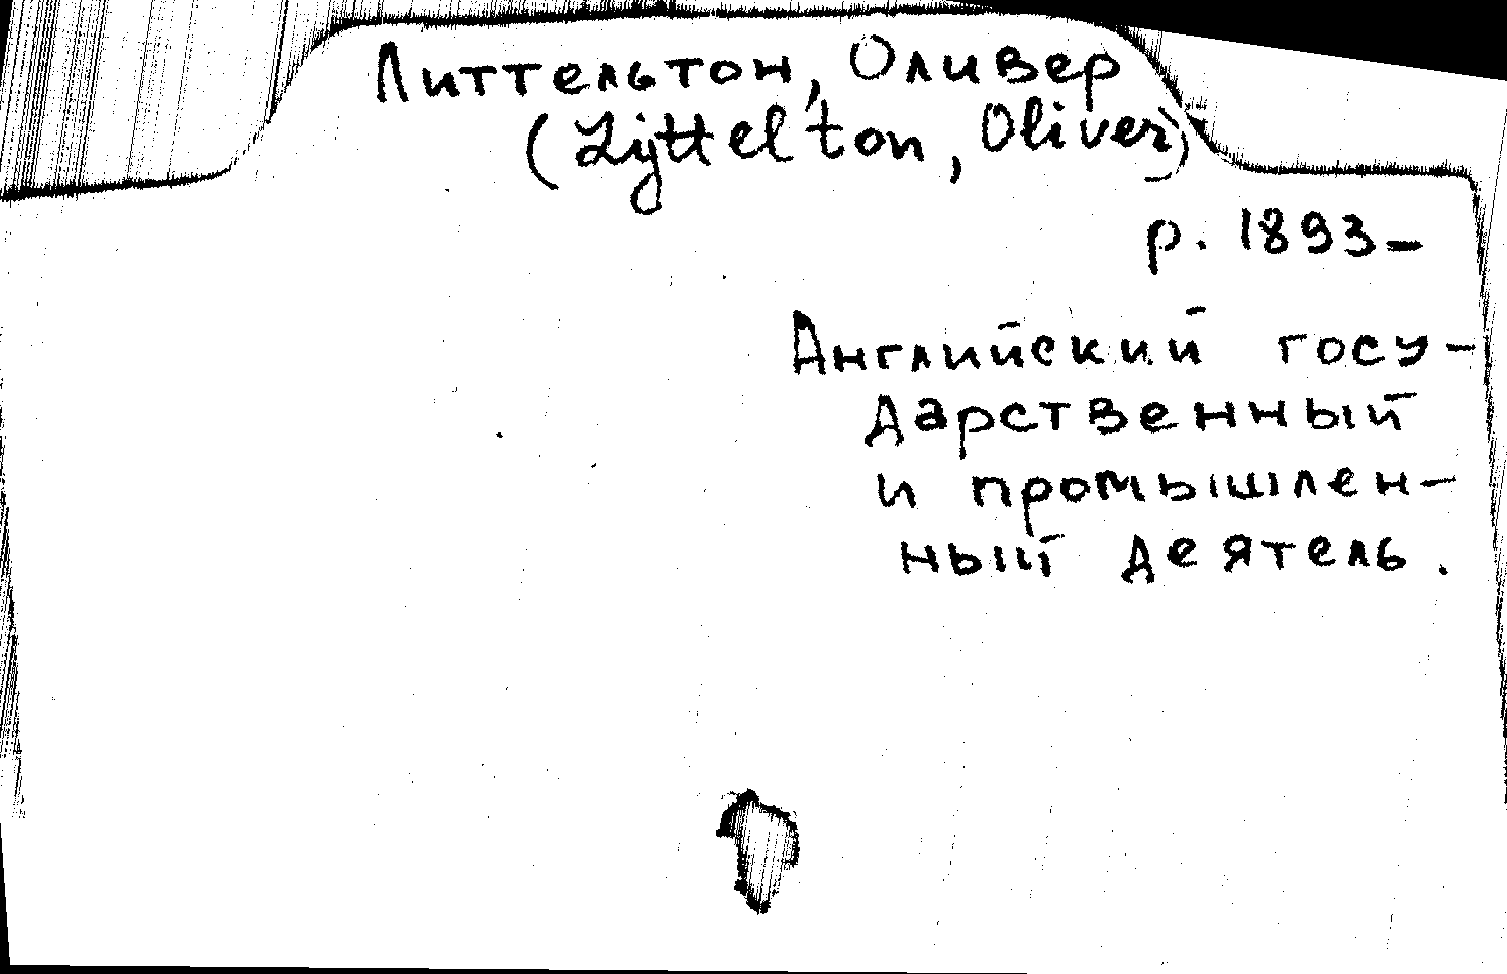 Литтельтон, Оливер
(Lyttelton, Oliver)
р. 1893–
Английский госу-
дарственный
и промышлен-
ный деятель.